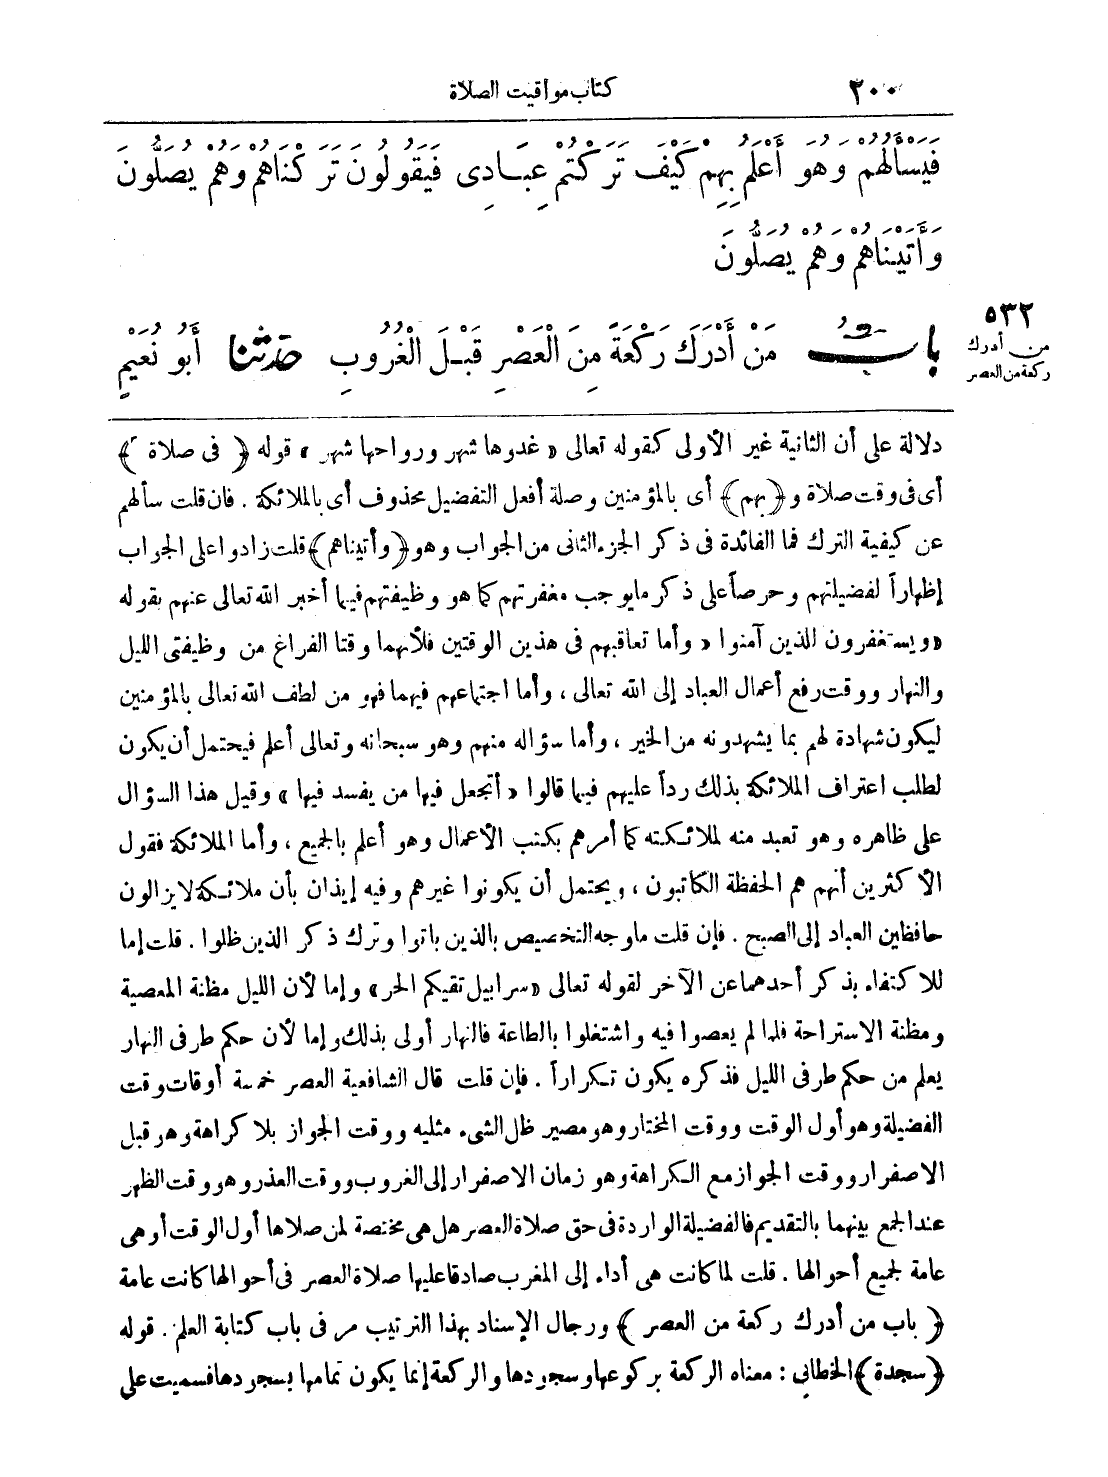 ٢٠٠ كتاب مواقيت الصلاة
فَيَسْأَلُهُمْ وَهُوَ أَعْلَمُ بِهِمْ كَيْفَ تَرَكْتُمْ عِبَادِى فَيَقُولُونَ تَرَكْنَاهُمْ وَهُمْ يُصَلُّونَ
وَأَتَيْنَاهُمْ وَهُمْ يُصَلُّونَ
٥٣٢
من أدرك
ركعة من العصر
بابٌ مَنْ أَدْرَكَ رَكْعَةً مِنَ الْعَصْرِ قَبْلَ الْغُرُوبِ حَدَّثَنَا أَبُو نُعَيْمٍ
دلالة على أن الثانية غير الأولى كقوله تعالى «غدوها شهر ورواحها شهر» قوله ﴿فى صلاة﴾
أى فى وقت صلاة و﴿بهم﴾ أى بالمؤمنين وصلة أفعل التفضيل محذوف أى بالملائكة. فان قلت سألهم
عن كيفية الترك فما الفائدة فى ذكر الجزء الثانى من الجواب وهو ﴿وأتيناهم﴾ قلت زادوا على الجواب
إظهاراً لفضيلتهم وحرصاً على ذكر ما يوجب مغفرتهم كما هو وظيفتهم فيما أخبر الله تعالى عنهم بقوله
«ويستغفرون للذين آمنوا» وأما تعاقبهم فى هذين الوقتين فلأنهما وقتا الفراغ من وظيفتى الليل
والنهار ووقت رفع أعمال العباد إلى الله تعالى، وأما اجتماعهم فيهما فهو من لطف الله تعالى بالمؤمنين
ليكون شهادة لهم بما يشهدونه من الخير، وأما سؤاله منهم وهو سبحانه وتعالى أعلم فيحتمل أن يكون
لطلب اعتراف الملائكة بذلك رداً عليهم فيما قالوا «أتجعل فيها من يفسد فيها» وقيل هذا السؤال
على ظاهره وهو تعبد منه لملائكته كما أمرهم بكتب الأعمال وهو أعلم بالجميع، وأما الملائكة فقول
الأكثرين أنهم هم الحفظة الكاتبون، ويحتمل أن يكونوا غيرهم وفيه إيذان بأن ملائكة لايزالون
حافظين العباد إلى الصبح. فإن قلت ما وجه التخصيص بالذين باتوا وترك ذكر الذين ظلوا. قلت إما
للاكتفاء بذكر أحدهما عن الآخر لقوله تعالى «سرابيل تقيكم الحر» وإما لأن الليل مظنة المعصية
ومظنة الاستراحة فلما لم يعصوا فيه واشتغلوا بالطاعة فالنهار أولى بذلك وإما لأن حكم طرفى النهار
يعلم من حكم طرفى الليل فذكره يكون تكراراً. فإن قلت قال الشافعية العصر خمسة أوقات وقت
الفضيلة وهو أول الوقت ووقت المختار وهو مصير ظل الشىء مثليه ووقت الجواز بلا كراهة وهو قبل
الاصفرار ووقت الجواز مع الكراهة وهو زمان الاصفرار إلى الغروب ووقت العذر وهو وقت الظهر
عند الجمع بينهما بالتقديم فالفضيلة الواردة فى حق صلاة العصر هل هى مختصة لمن صلاها أول الوقت أو هى
عامة لجميع أحوالها. قلت لما كانت هى أداء إلى المغرب صادقا عليها صلاة العصر فى أحوالها كانت عامة
﴿باب من أدرك ركعة من العصر﴾ ورجال الإسناد بهذا الترتيب مر فى باب كتابة العلم. قوله
﴿سجدة﴾ الخطابي: معناه الركعة بركوعها وسجودها والركعة إنما يكون تمامها بسجودها فسميت على